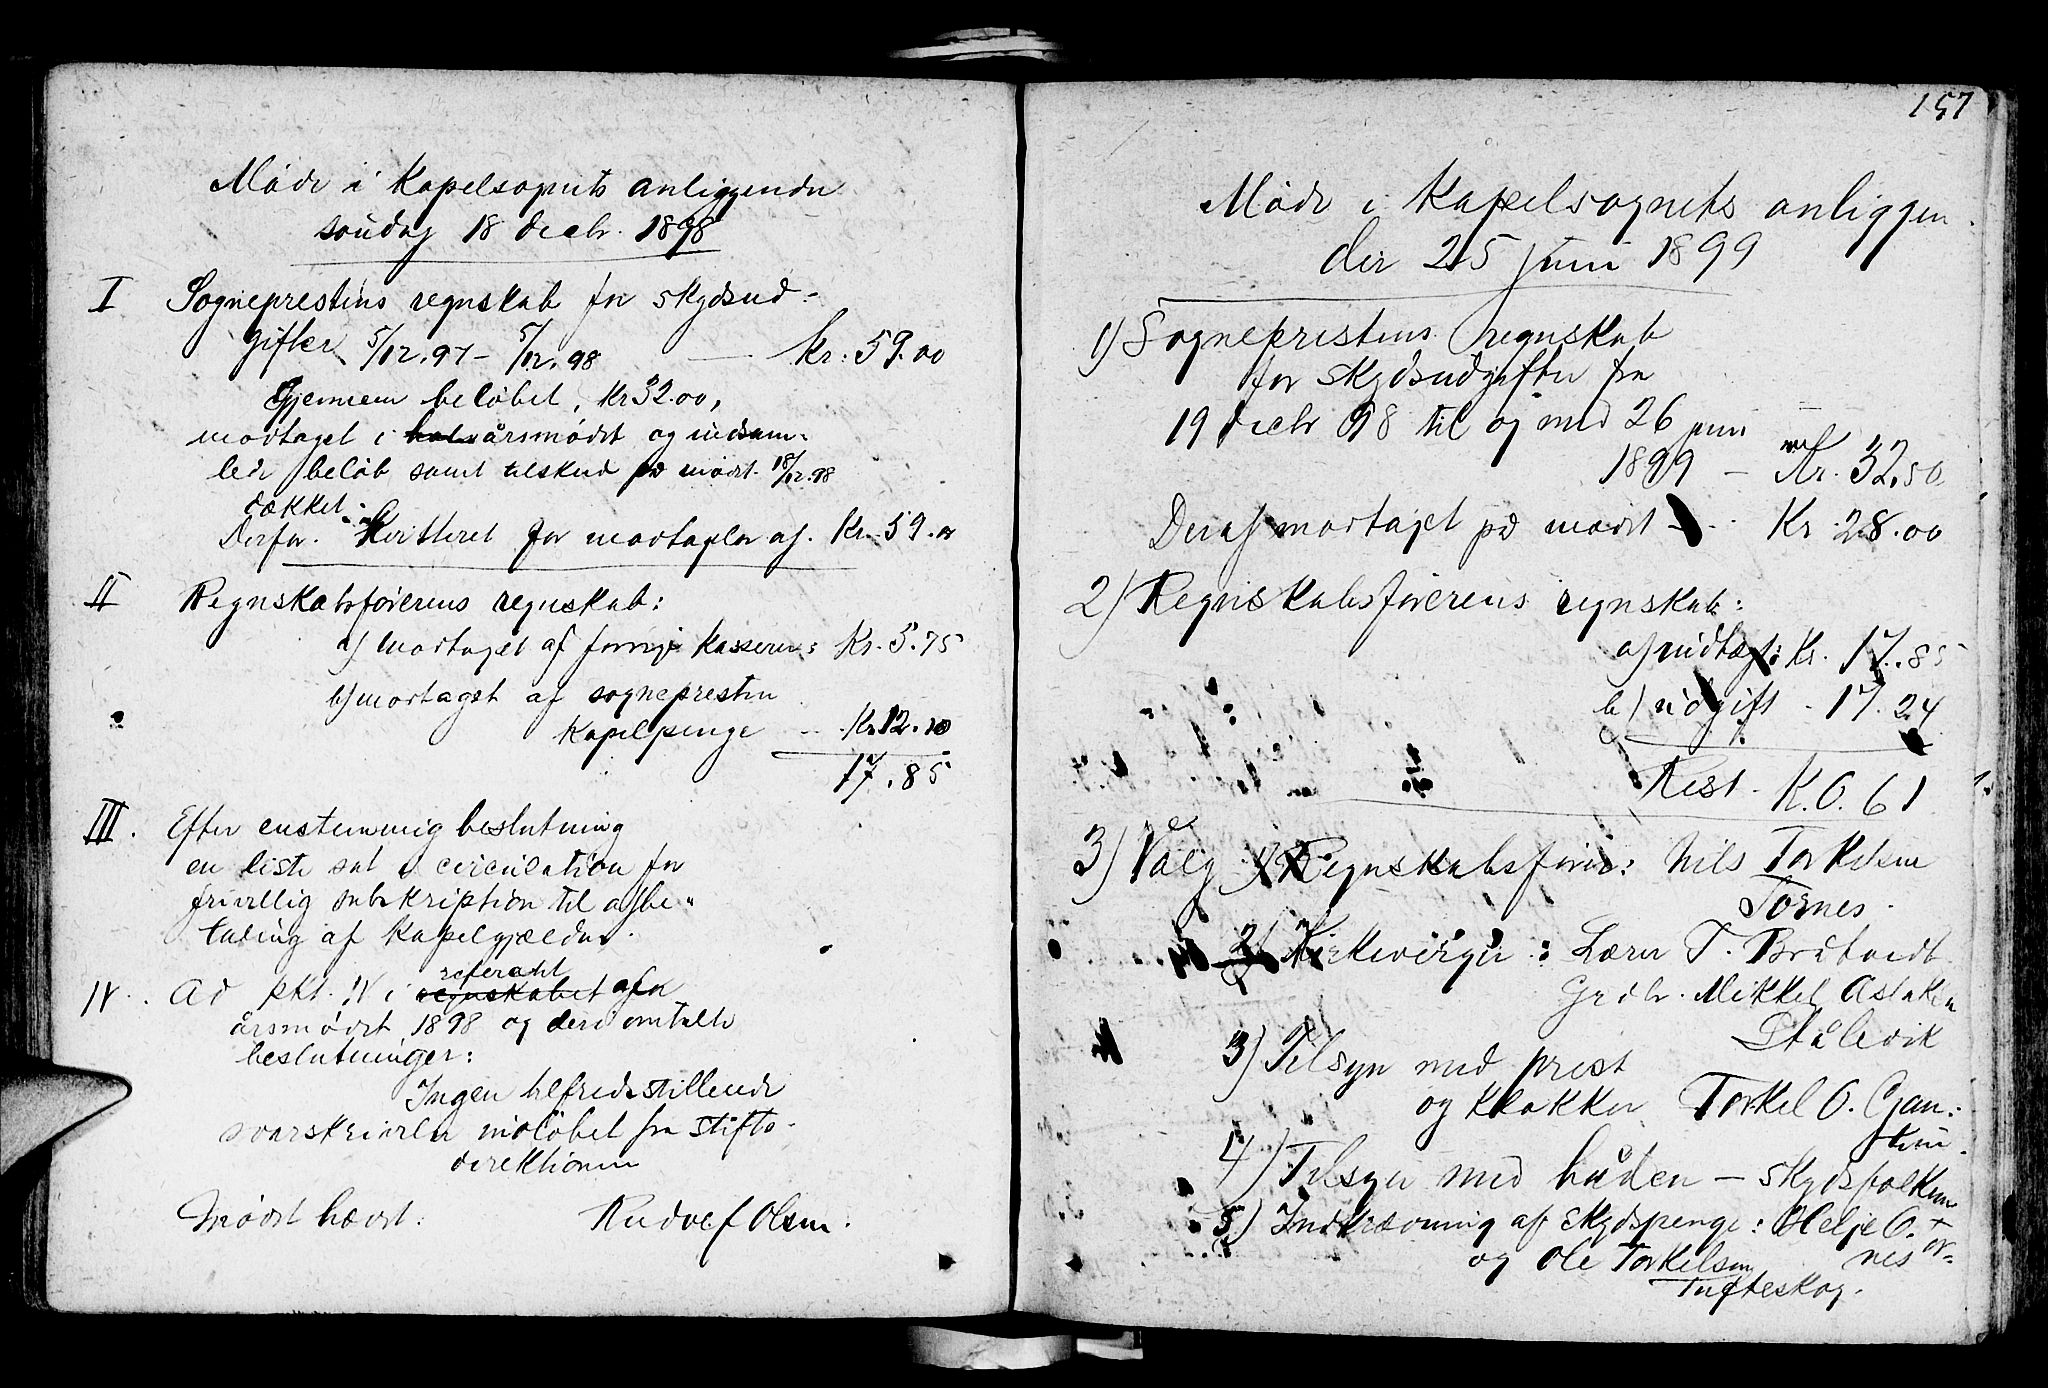 Møde i Kapelsognets anliggender
søndag 18 decbr. 1898
I Sogneprestens regnskab for skydsud-
gifter 5/12.97 – 5/12.98 — Kr: 59.00
Gjennem beløbet, Kr 32.00,
modtaget i årsmødet og indsam-
lede beløb samt tilskud på mødet 18/12.98
dækket.
Derfor. Kvitteret for modtagelse af. Kr. 59.00
II Regnskabsførerens regnskab:
a) Modtaget af forrige Kasserer: Kr. 5.75
b) modtaget af sognepresten
Kapelpenge — Kr. 12.10
17.85
III. Efter enstemmig beslutning
en liste sat i circulation for
frivillig subskription til afbe-
taling af Kapelgjælden.
referatet
IV. Ad pkt. IV i regnskabet af
årsmødet 1898 og deri omtalte
beslutninger:
Ingen tilfredsstillende
svarskrivelse indløbet fra stifts-
direktionen
Mødet hævet: Rudolf Olsen.
157
Møde i Kapelsognets anliggen-
der 25 juni 1899
1) Sogneprestens regnskab
for skydsudgifter fra
19 decbr 98 til og med 26 juni
1899 – Kr. 32.50
Deraf modtaget på mødet - Kr. 28.00
2) Regnskabsførerens regnskab:
a) indtægt: Kr. 17.85
b) udgift - 17.24
Rest - K. 0.61
3) Valg 1) Regnskabsfører: Nils Torkelsen
Tornes.
2) Kirkeverger: Lærer T. Bråtvedt
Grdbr. Mikkel Aslaksen
Stålevik
3) Tilsyn med prest
og klokker Torkel O. Gjen-
stein.
4) Tilsyn med båden – skydsfolkene
5) Indkrævning af skydspenge: Helje O. Tor-
nes
og Ole Torkelsen
Tufteskog.